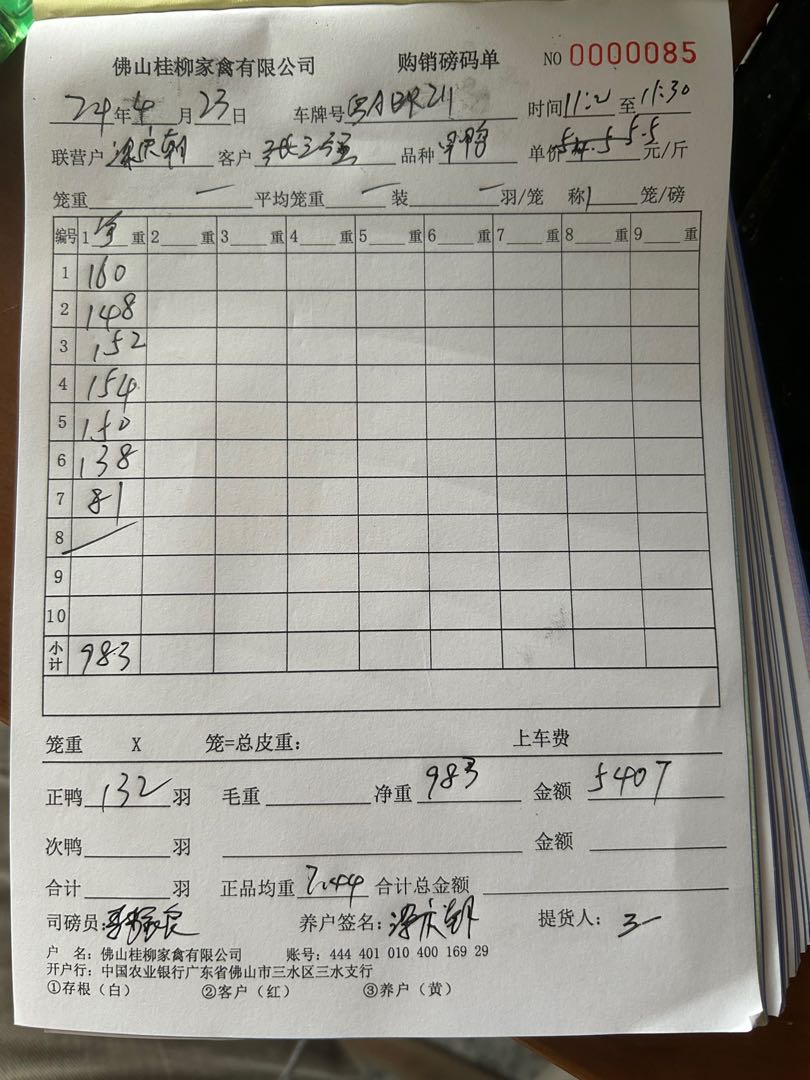 佛山桂柳家禽有限公司 购销磅码单 NO 0000085
24年4月23日 车牌号 时间11:2 至11:30
联营户梁庆朝 客户 品种 单价 5.5 元/斤
笼重 一 平均笼重 一 装 一 羽/笼 称1 笼/磅
编号 1 重 2 重 3 重 4 重 5 重 6 重 7 重 8 重 9 重
1 160
2 148
3 152
4 154
5 150
6 138
7 81
8
9
10
小计 983
笼重 X 笼=总皮重: 上车费
正鸭 132 羽 毛重 净重 983 金额 5407
次鸭 羽 金额
合计 羽 正品均重 7.44 合计总金额
司磅员: 养户签名:梁庆朝 提货人:
户 名:佛山桂柳家禽有限公司 账号:444 401 010 400 169 29
开户行:中国农业银行广东省佛山市三水区三水支行
①存根（白） ②客户（红） ③养户（黄）